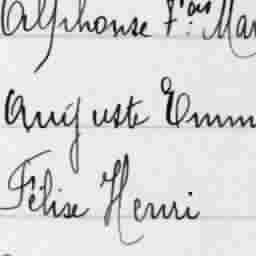 Alphonse F.ois Mar
Auguste Emm
Félise Henri